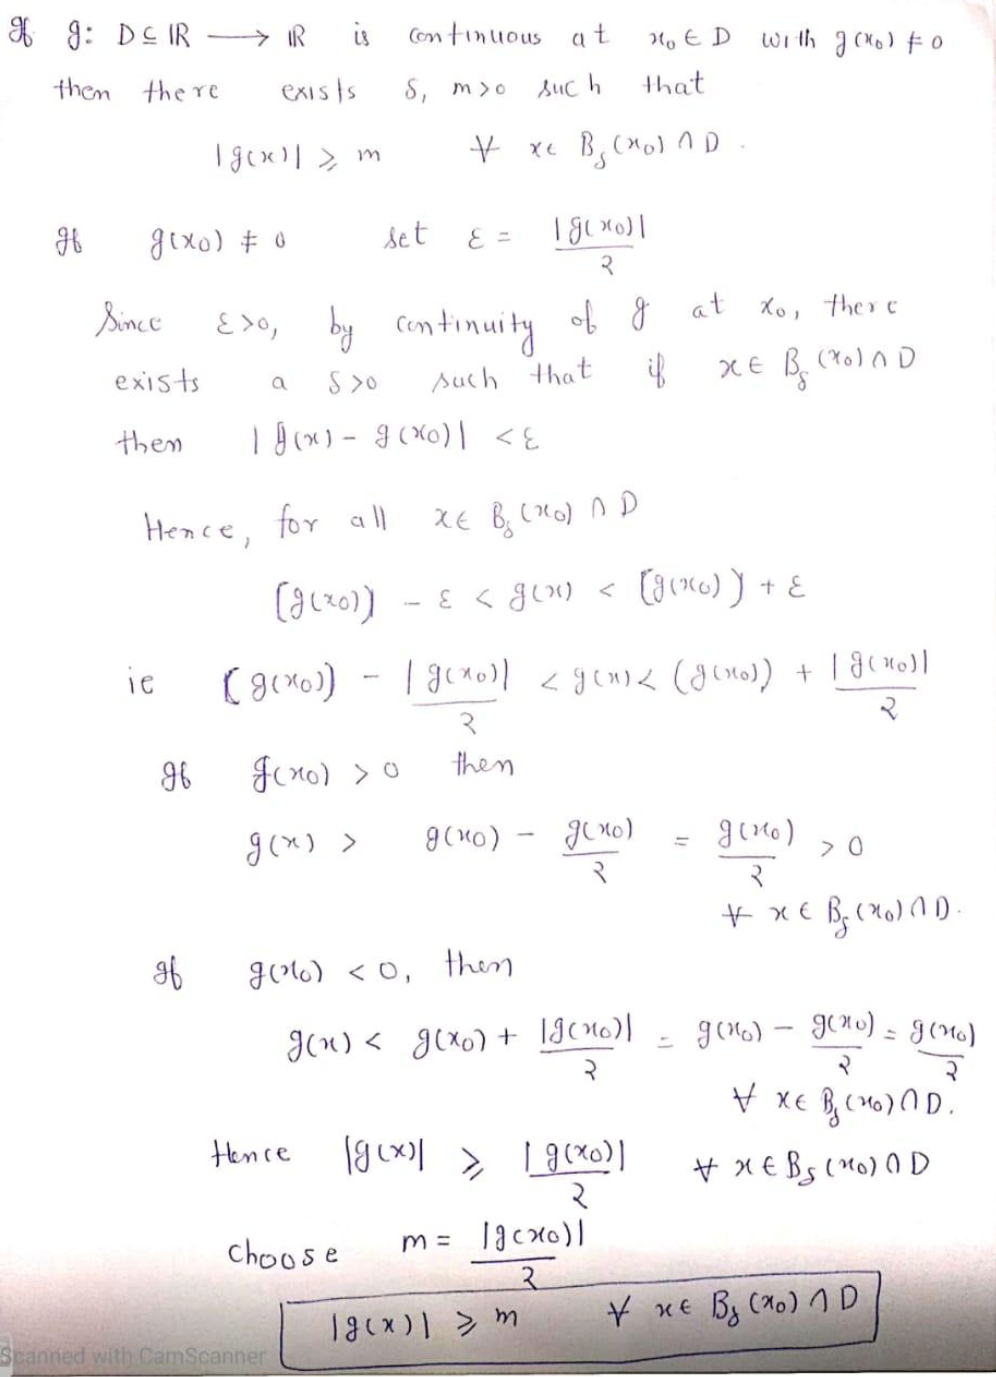 If g: D ⊆ ℝ ⟶ ℝ is continuous at x₀ ∈ D with g(x₀) ≠ 0
then there exists δ, m>0 such that
|g(x)| ⩾ m ∀ x∈ B_δ(x₀) ∩ D .
If g(x₀) ≠ 0 set ε = |g(x₀)|/2
Since ε>0, by continuity of g at x₀, there
exists a δ>0 such that if x∈ B_δ(x₀)∩D
then |g(x) - g(x₀)| < ε
Hence, for all x∈ B_δ(x₀) ∩ D
[g(x₀)) - ε < g(x) < [g(x₀)) + ε
ie (g(x₀)) - |g(x₀)|/2 < g(x) < (g(x₀)) + |g(x₀)|/2
If g(x₀) > 0 then
g(x) > g(x₀) - g(x₀)/2 = g(x₀)/2 > 0
∀ x ∈ B_δ(x₀)∩D.
If g(x₀) < 0, then
g(x) < g(x₀) + |g(x₀)|/2 = g(x₀) - g(x₀)/2 = g(x₀)/2
∀ x∈ B_δ(x₀)∩D.
Hence |g(x)| ⩾ |g(x₀)|/2 ∀ x∈B_δ(x₀)∩D
choose m = |g(x₀)|/2
|g(x)| ⩾ m ∀ x∈ B_δ(x₀) ∩ D
Scanned with CamScanner